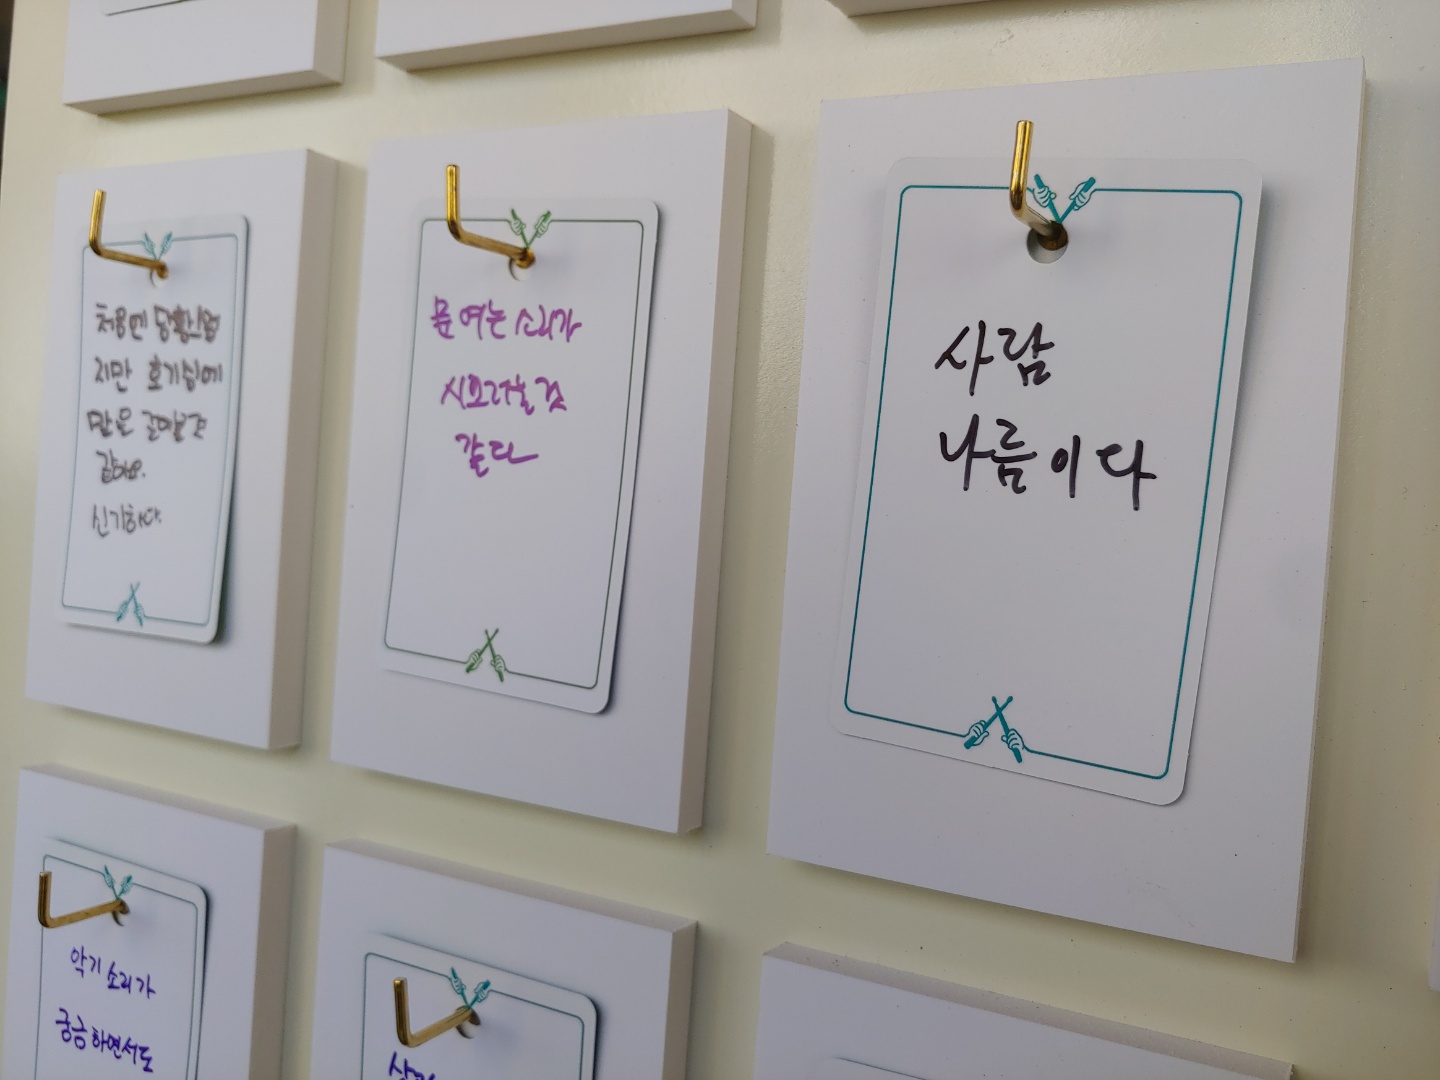 처음엔 당황스럽
지만 호기심에
말은 걸어볼것
같아요.
신기하다.
문 여는 소리가
시끄러울 것
같다
사람
나름이다
악기 소리가
궁금하면서도